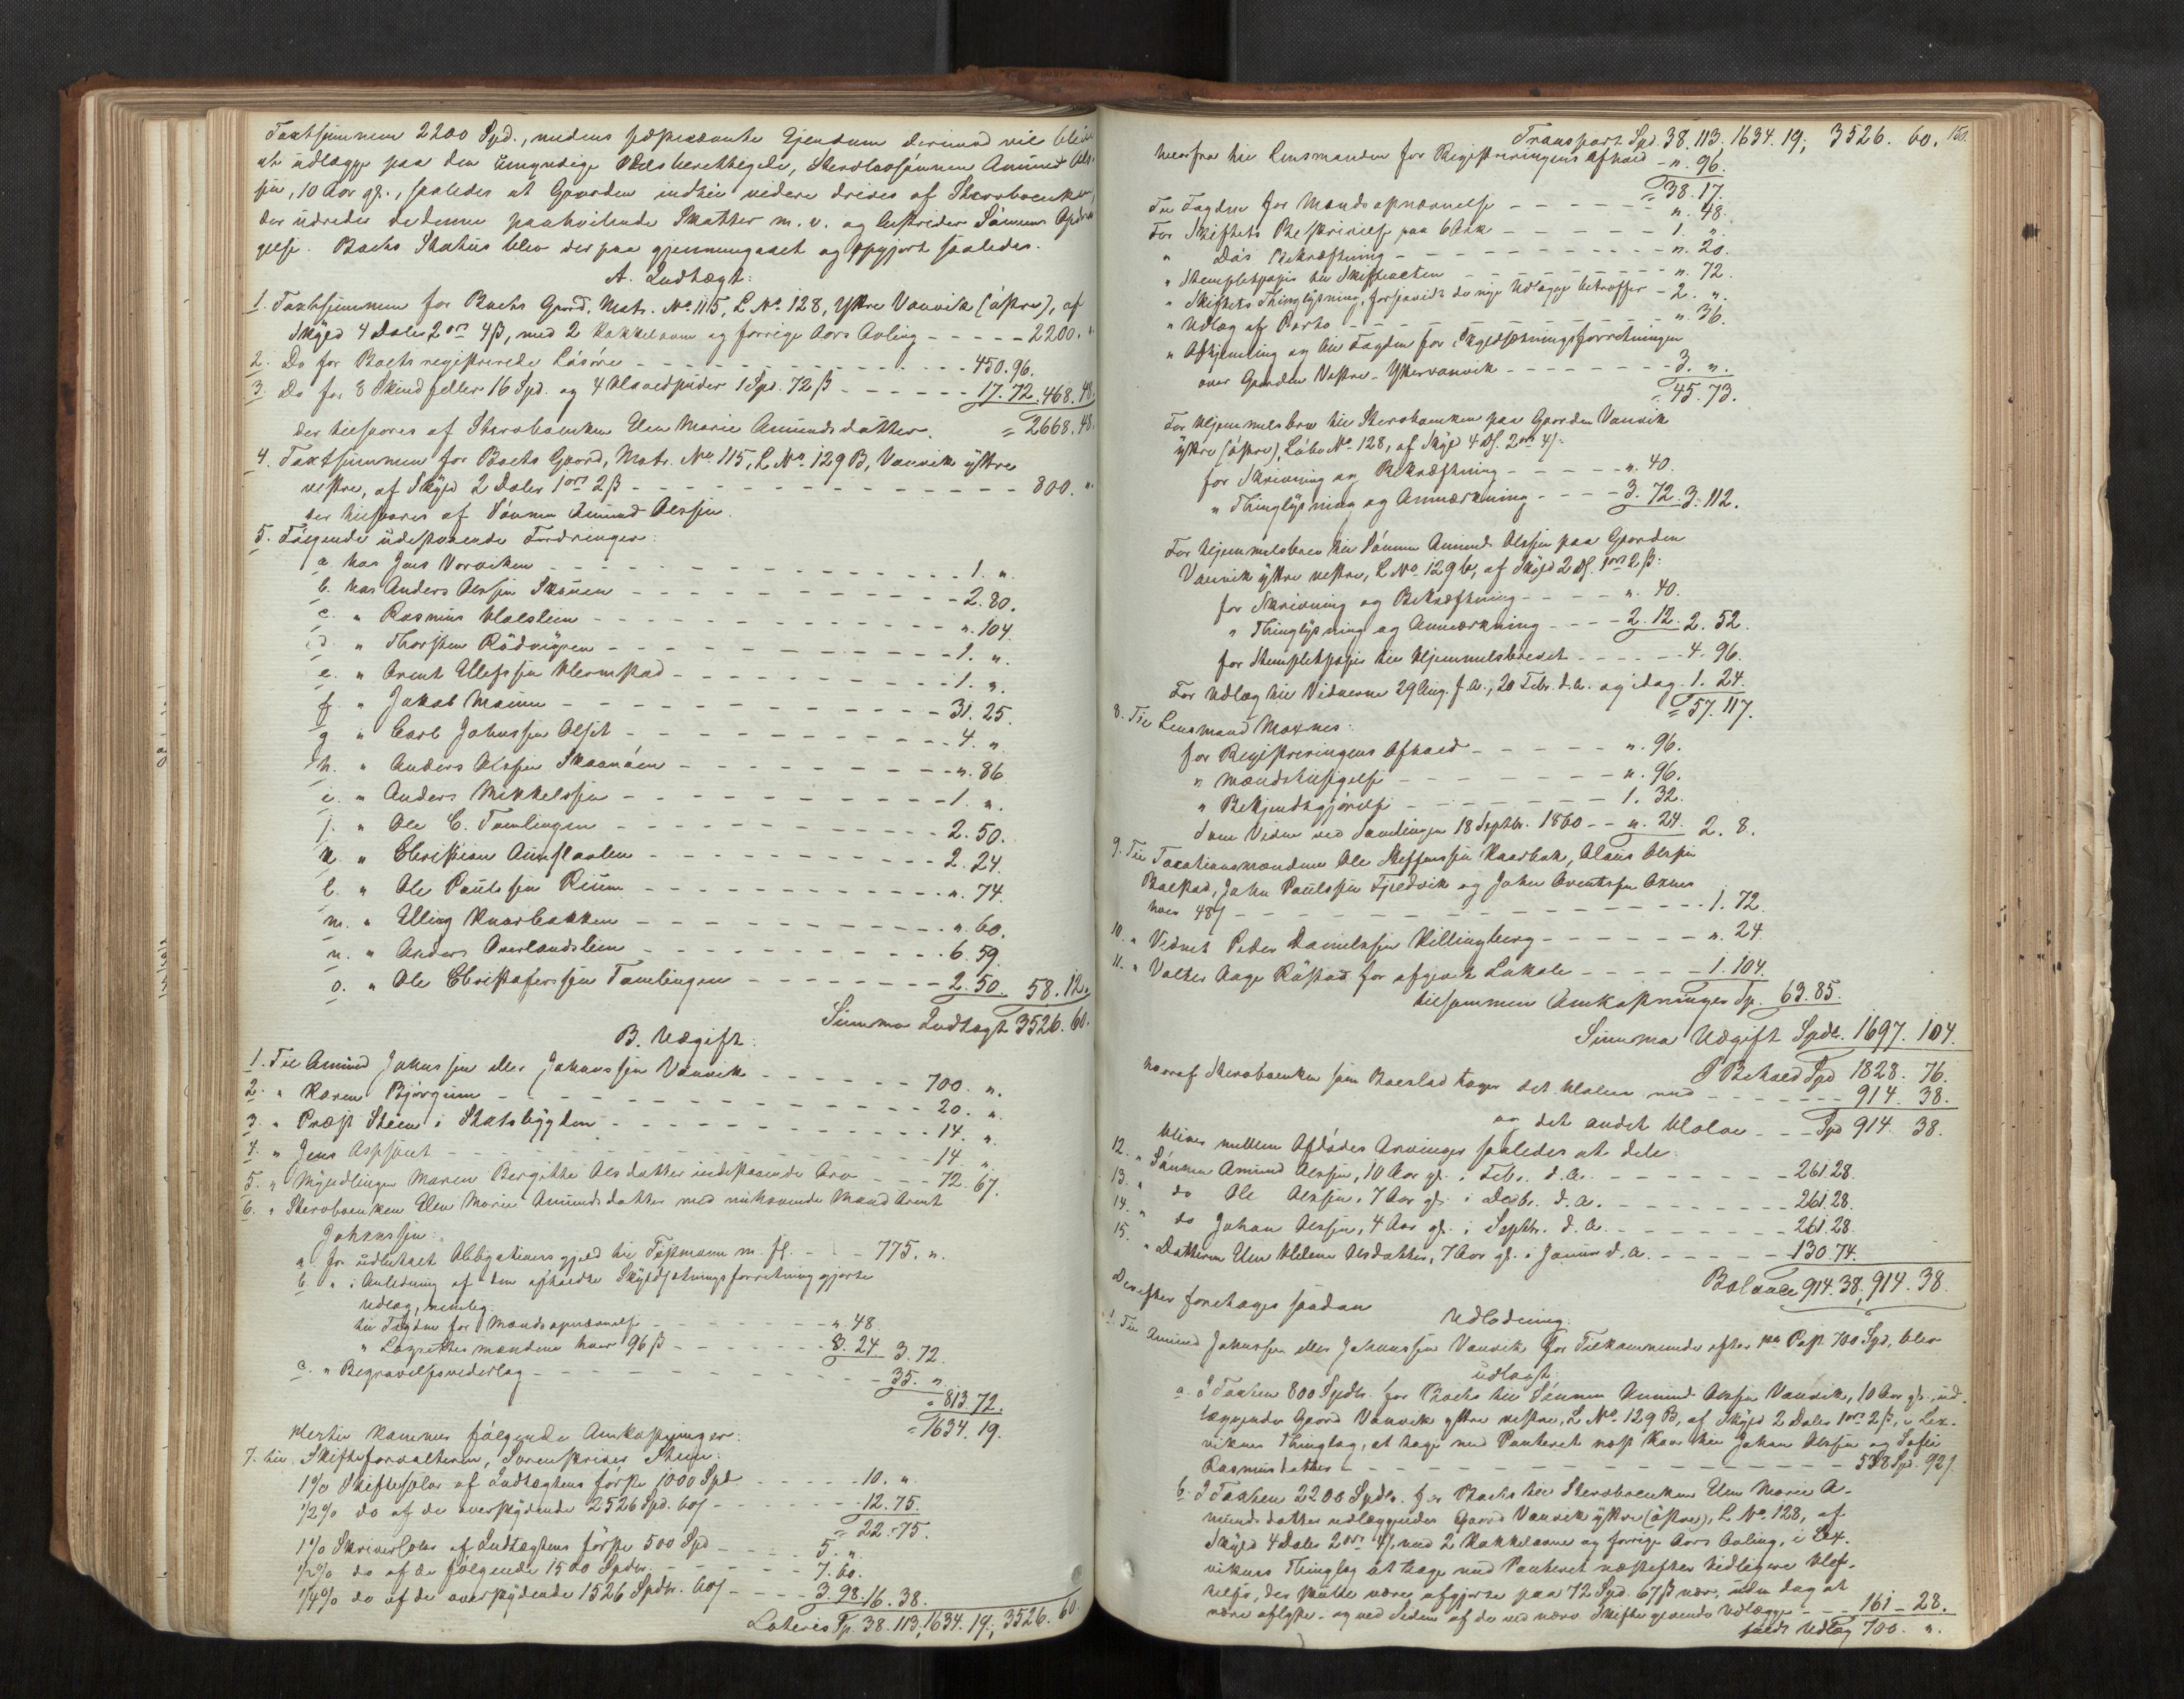 Taxtsummen 2200 Spd., medens sidstnævnte Eiendom derimod vil blive
at udlægge paa den umyndige Odelsberettigede, Stervbosønnen Amund Ols-
sen, 10 Aar gl., saaledes at Gaarden indtil videre drives af Stervboenken,
der udreder de denne paahvilende Skatter m. v. og bestrider Sønnens Opdra-
gelse. Boets Status blev derpaa gjennemgaaet og opgjort saaledes.
A. Indtægt:
1. Taxtsummen for Boets Gaard, Matr. No 115, L No 128, Ytre Vanvik (østre), af
Skyld 4 Daler 2 ort 4 β, med 2 Kakkelovne og forrige Aars Avling - - - - - 2200. "
2. Do for Boets registrerede Løsøre - - - - - 450. 96.
3. Do for 8 Skindfelder 16 Spd. og 4 Hovedpuder 1 Spd. 72 β - - - - - 17. 72. 468. 48.
der tilsvares af Stervboenken Elen Marie Amundsdatter. = 2668. 48.
4. Taxtsummen for Boets Gaard, Matr. No 115, L No 129 B, Vanvik ytre
vestre, af Skyld 2 Daler 1 ort 2 β - - - - - 800. "
der tilsvares af Sønnen Amund Olssen.
5. Følgende udestaaende Fordringer:
a. hos Jens Vorviken - - - - - 1. "
b. hos Anders Olssen Skauen - - - - - 2. 80.
c. " Rasmus Halslien - - - - - ". 104.
d. " Thorsten Rödsöyen - - - - - 1. ".
e. " Arent Ellefssen Hermstad - - - - - 1. ".
f. " Jakob Maium - - - - - 31. 25.
g. " Carl Johnssen Olset - - - - - 4. ".
h. " Anders Olssen Skaanøen - - - - - ". 86.
i. " Anders Mikkelssen - - - - - 1. ".
j. " Ole C. Tømlingen - - - - - 2. 50.
k. " Christian Aunstaulen - - - - - 2. 24.
l. " Ole Paulssen Rium - - - - - ". 74.
m. " Elling Kvarbakken - - - - - ". 60.
n. " Anders Overlandslien - - - - - 6. 59.
o. " Ole Christofferssen Tømlingen - - - - - 2. 50. 58. 12.
Summa Indtægt 3526. 60.
B. Udgift:
1. Til Amund Johnssen eller Johanssen Vanvik - - - - - 700. ".
2. " Karen Bjørgum - - - - - 20. ".
3. " Præst Steen i Stadsbygden - - - - - 14. ".
4. " Jens Opphout - - - - - 14. "
5. " Myndlingen Maren Bergitte Olsdatters indestaaende Arv - - - 72. 67.
6. " Stervboenken Elen Marie Amundsdatter med nuhavende Mand Arnt
Johanssen:
a. for udbetalt Obligationsgjeld til Tostmann m. fl. - - - 775. ".
b. " i Anledning af den afholdte Skyldsætningsforretning gjorte
Udlag, nemlig:
til Fogden for Mandsopnævnelse - - - - - ". 48
" Lagrettesmændene hver 96 β - - - - - 3. 24 3. 72.
c. " Begravelsesvederlag - - - - - 35. ".
= 813. 72.
= 1634. 19.
Hertil kommer følgende Omkostninger:
7. til Skifteforvalteren, Sorenskriver Steen:
1 % Skiftesalær af Indtægtens første 1000 Spd - - - - - 10. ".
1/2 % do af de overskydende 2526 Spd. 60 β - - - - - 12. 75.
= 22. 75.
1 % Skriversalær af Indtægtens første 500 Spd - - - 5. ".
1/2 % do af de følgende 1500 Spdr. - - - 7. 60.
1/4 % do af de overskydende 1526 Spdr. 60 β - - - 3. 98. 16. 38.
Lateris Sp. 38. 113; 1634. 19; 3526. 60.
Transport Spd. 38. 113; 1634. 19; 3526. 60. 150
herfra til Lensmanden for Registreringens Afhold - ". 96.
= 38. 17.
Til Fogden for Mandsopnævnelse - - - - - ". 48.
For Skiftets Beskrivelse paa 6 Ark - - - - - 1. ".
" Dos Bekræftning - - - - - ". 20.
" Stemplet papir til Skifteacten - - - - - ". 72.
" Skiftets Thinglysning, forsaavidt de nye Udlægge betræffer - 2. ".
" Udlæg af Porto - - - - - ". 36.
" Afhjemling og til Fogden for Skyldsætningsforretningen
over Gaarden Vestre-Ytrevanvik - - - - - 3. ".
= 45. 73.
For Hjemmelsbrev til Stervboenken paa Gaarden Vanvik
ytre (østre), Løbe No 128, af Skyld 4 D. 2 ort 4 β:
for Skrivning og Bekræftning - - - - - ". 40.
" Thinglysning og Anmærkning - - - - 3. 72. 3. 112.
For Hjemmelsbrev til Sønnen Amund Olssen paa Gaarden
Vanvik ytre vestre, L No 129 b, af Skyld 2 D. 1 ort 2 β:
for Skrivning og Bekræftning - - - - ". 40.
" Thinglysning og Anmærkning - - - 2. 12. 2. 52.
for Stemplet papir til Hjemmelsbrevet - - - - - 4. 96.
For Udlæg til Vidnerne 29 Aug. f. A., 20 Febr. d. A. og idag 1. 24.
= 57. 117.
8. Til Lensmand Moxnes:
for Registreringens Afhold - - - - - ". 96.
" Mændstilsigelse - - - - - ". 96.
" Bekjendtgjørelse - - - - - 1. 32.
Som Vidne ved Samlingen 18 Septbr. 1860 - - ". 24. 2. 8.
9. Til Taxationsmændene Ole Steffenssen Kaarbak, Claus Olssen
Bolstad, John Paulssen Fjeldvik og John Arentssen Oxnes
hver 48 β - - - - - 1. 72.
10. " Vidnet Peder Danielssen Killingberg - - - - - ". 24.
11. " Volter Aage Røstad for afgivet Lokale - - - - - 1. 104.
tilsammen Omkostninger Sp. 63. 85.
Summa Udgift Spdr. 1697. 104.
I Behold Spd 1828. 76.
hvoraf Stervboenken som Boeslod tager det Halve med - - - - - 914. 38.
og det andet Halve - - - Spd 914. 38.
bliver mellem Afdødes Arvinger saaledes at dele:
12. " Sønnen Amund Olssen, 10 Aar gl. i Febr. d. A. - - - - - 261. 28.
13. " do Ole Olssen, 7 Aar gl. i Decbr. d. A. - - - - - 261. 28.
14. " do Johan Olssen, 4 Aar gl. i Septbr. d. A. - - - - - 261. 28.
15. " Datteren Elen Helene Olsdatter, 7 Aar gl. i Januar d. A. - - - - - 130. 74.
Balance 914. 38; 914. 38.
Derefter foretages saadan
Udlodning:
1. Til Amund Johnssen eller Johanssen Vanvik for Tilkommende efter 1ste Post 700 Spd, blev
udlagt:
a. I Taxten 800 Spdr. for Boets til Sønnen Amund Olssen Vanvik, 10 Aar gl., ud-
læggende Gaard Vanvik ytre vestre, L No 129 B, af Skyld 2 Daler 1 ort 2 β, i Lex-
vikens Thinglag, at tage med Panteret næst Kaar til Johan Olssen og Sofie
Rasmusdatter - - - - - 538 Spd. 92 β
b. I Taxten 2200 Spdr. for Boets til Stervboenken Elen Marie A-
mundsdatter udlæggendes Gaard Vanvik ytre (østre), L No 128, af
Skyld 4 Daler 2 ort 4 β, med 2 Kakkelovne og forrige Aars Avling, i Lex-
vikens Thinglag at tage med Panteret næstefter tidligere Hef-
telse, der skulle være afgjorte paa 72 Spd. 67 β nær, uden dog at
være aflyste, og ved Siden af de ved nærv. Skifte givende Udlægge - - - 161 - 28.
fuldt Udlæg 700. ".